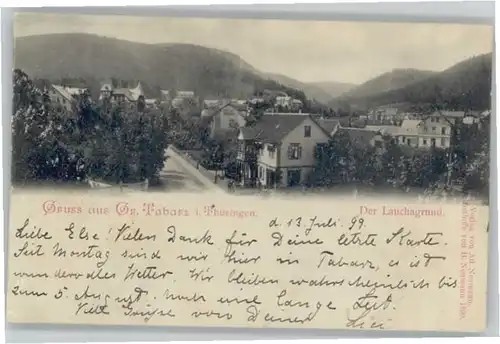 Gruss aus Gr. Tabarz i. Thüringen.
Der Lauchagrund.
d. 13. Juli. 99.
Liebe Else! Vielen Dank für Deine letzte Karte.
Seit Montag sind wir hier in Tabarz, es ist
wundervolles Wetter. Wir bleiben wahrscheinlich bis
zum 5. August, eine lange Zeit.
Viele Grüße von Deiner
Verlag von